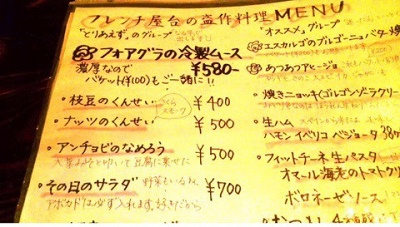 フレンチ屋台の盗作料理MENU
「とりあえず。」のグループ
フォアグラの冷製ムース
濃厚なので
バゲット(¥100)もご一緒に!!
¥580-
・枝豆のくんせい
¥400
さくら
スモーク
・ナッツのくんせい
¥500
・アンチョビのなめろう
¥500
・その日のサラダ
野菜もいるね。
¥700
アボカドは必ず入れます。好きだから
「オススメ」グループ
エスカルゴのブルゴーニュバター焼
あつあつアヒージョ
・焼きニョッキ(ゴルゴンゾラクリー
・生ハム
ハモン イベリコ ベジョータ 38ヶ
・フィットチーネ生パスタ
オマール海老のトマトクリ
ボロネーゼソース